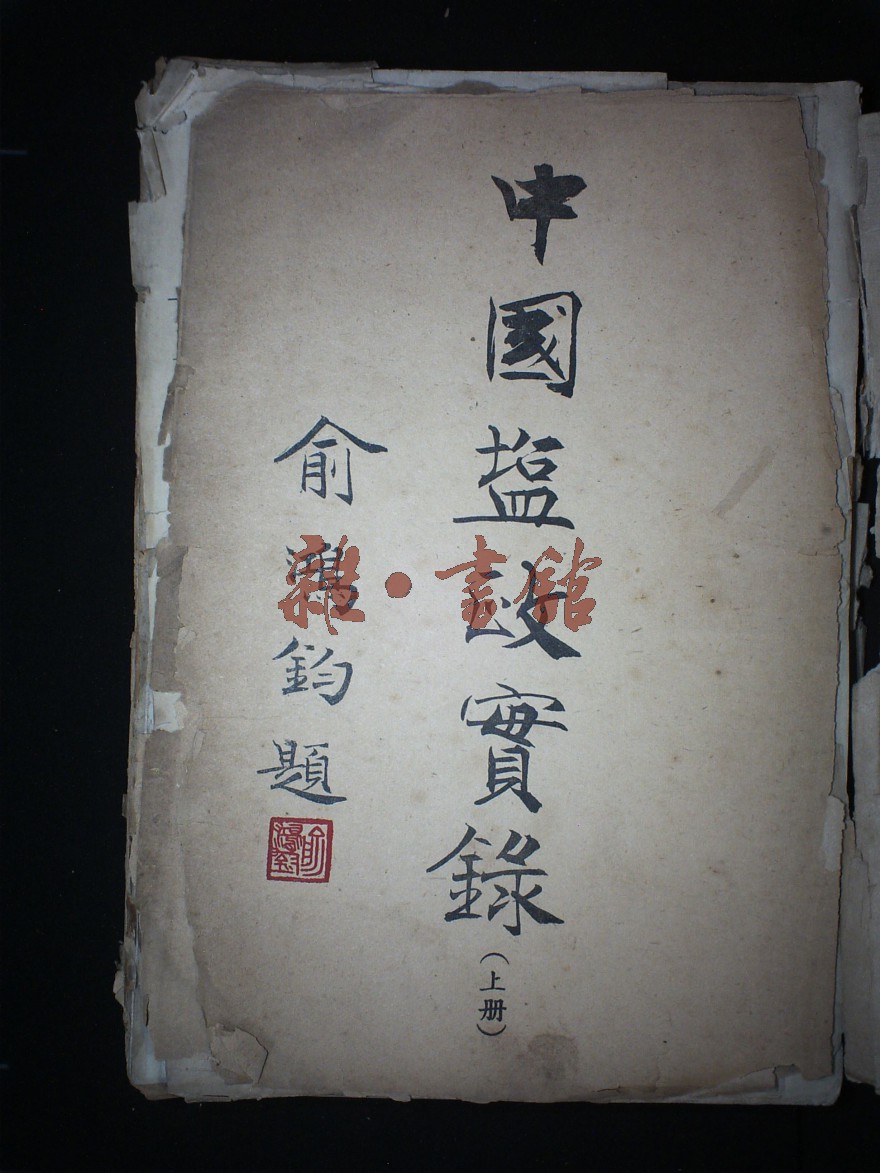 中國塩政實錄
(上册)
俞鴻鈞題
俞鴻鈞
雜·書館